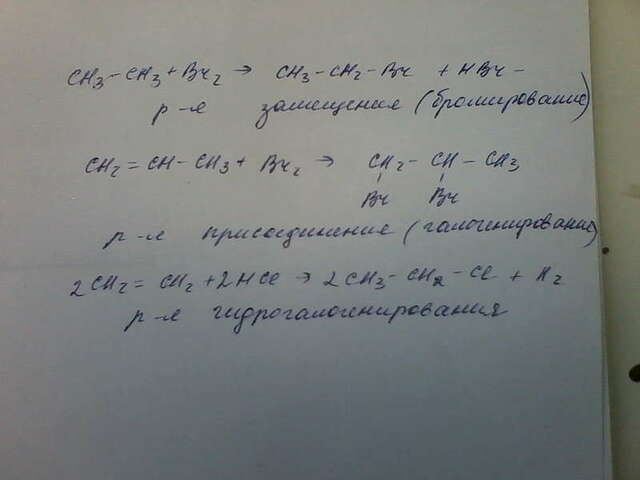 CH3 – CH3 + Br2 → CH3 – CH2 – Br + HBr –
р-я замещения (бромирование)
CH2 = CH – CH3 + Br2 → CH2 – CH – CH3
Br Br
р-я присоединение (галогенирование)
2CH2 = CH2 + 2HCl → 2CH3 – CH2 – Cl + H2
р-я гидрогалогенирования